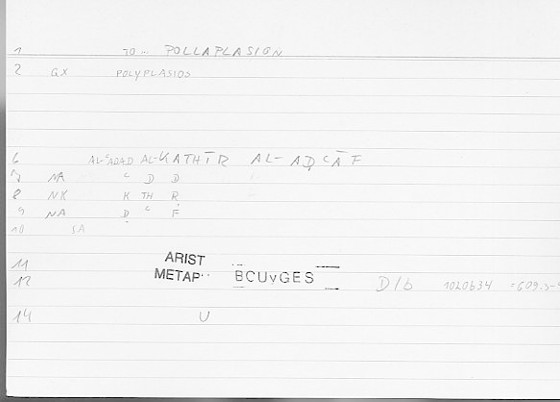 1 TO... POLLAPLASION
2 GX POLYPLASIOS
6 AL-ʿADAD AL-KATHĪR AL-ADʿĀF
7 NA ʿ D D
8 NX K TH R
9 NA Ḍ ʿ F
10 SA
11 ARIST
12 METAP.. BCUvGES D/b 1020b34
14 U